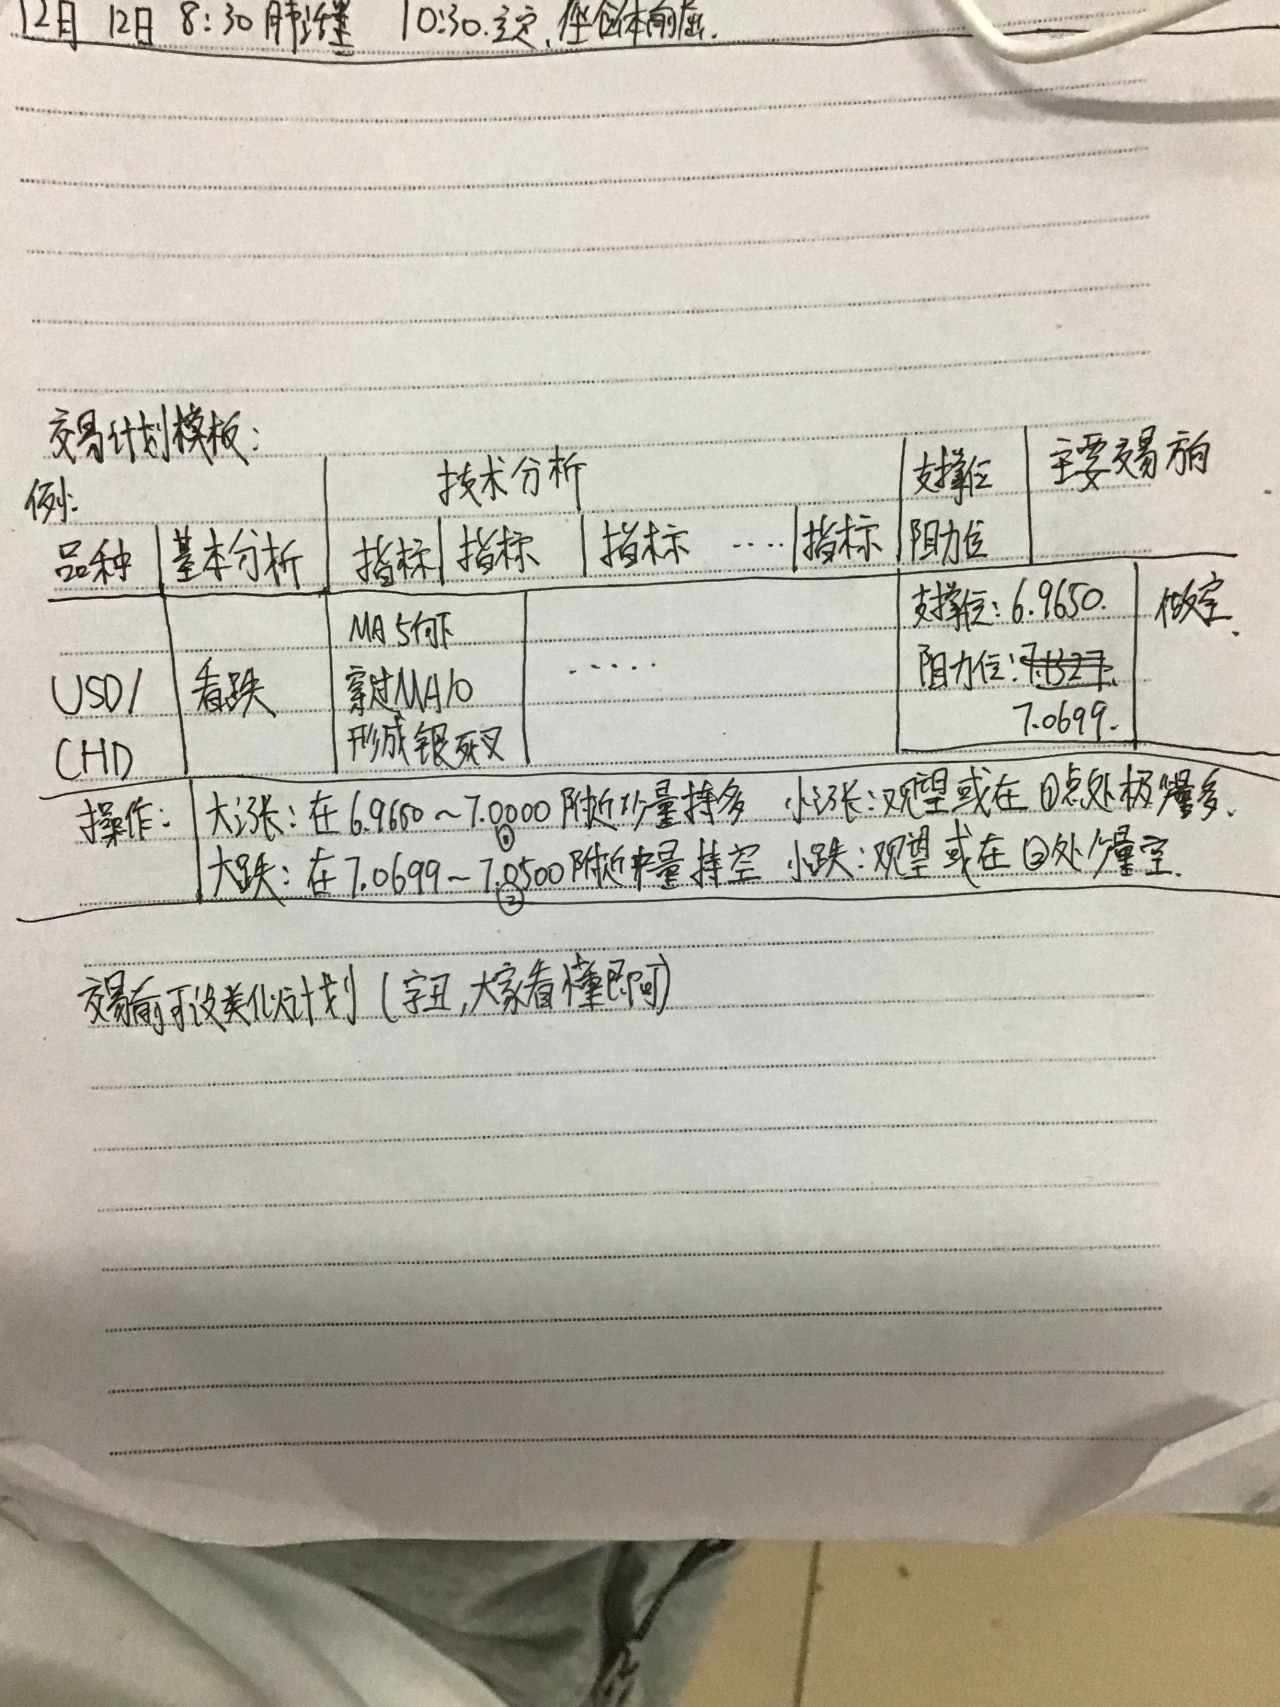 12月 12日 8:30 10:30.
交易计划模板:
例:
技术分析 支撑位 主要交易方向
品种 基本分析 指标 指标 指标 ..... 指标 阻力位
MA5向下 支撑位:6.9650. 做空.
USD/ 看跌 穿过MA10 ..... 阻力位:
CHD 形成银死叉 7.0699.
操作: 大涨: 在6.9650~7.0000附近少量持多 小涨:观望或在①点处极少量多.
①
大跌: 在7.0699~7.0500附近中量持空 小跌:观望或在②处少量空.
②
交易前可设类似计划(字丑,大家看懂即可)